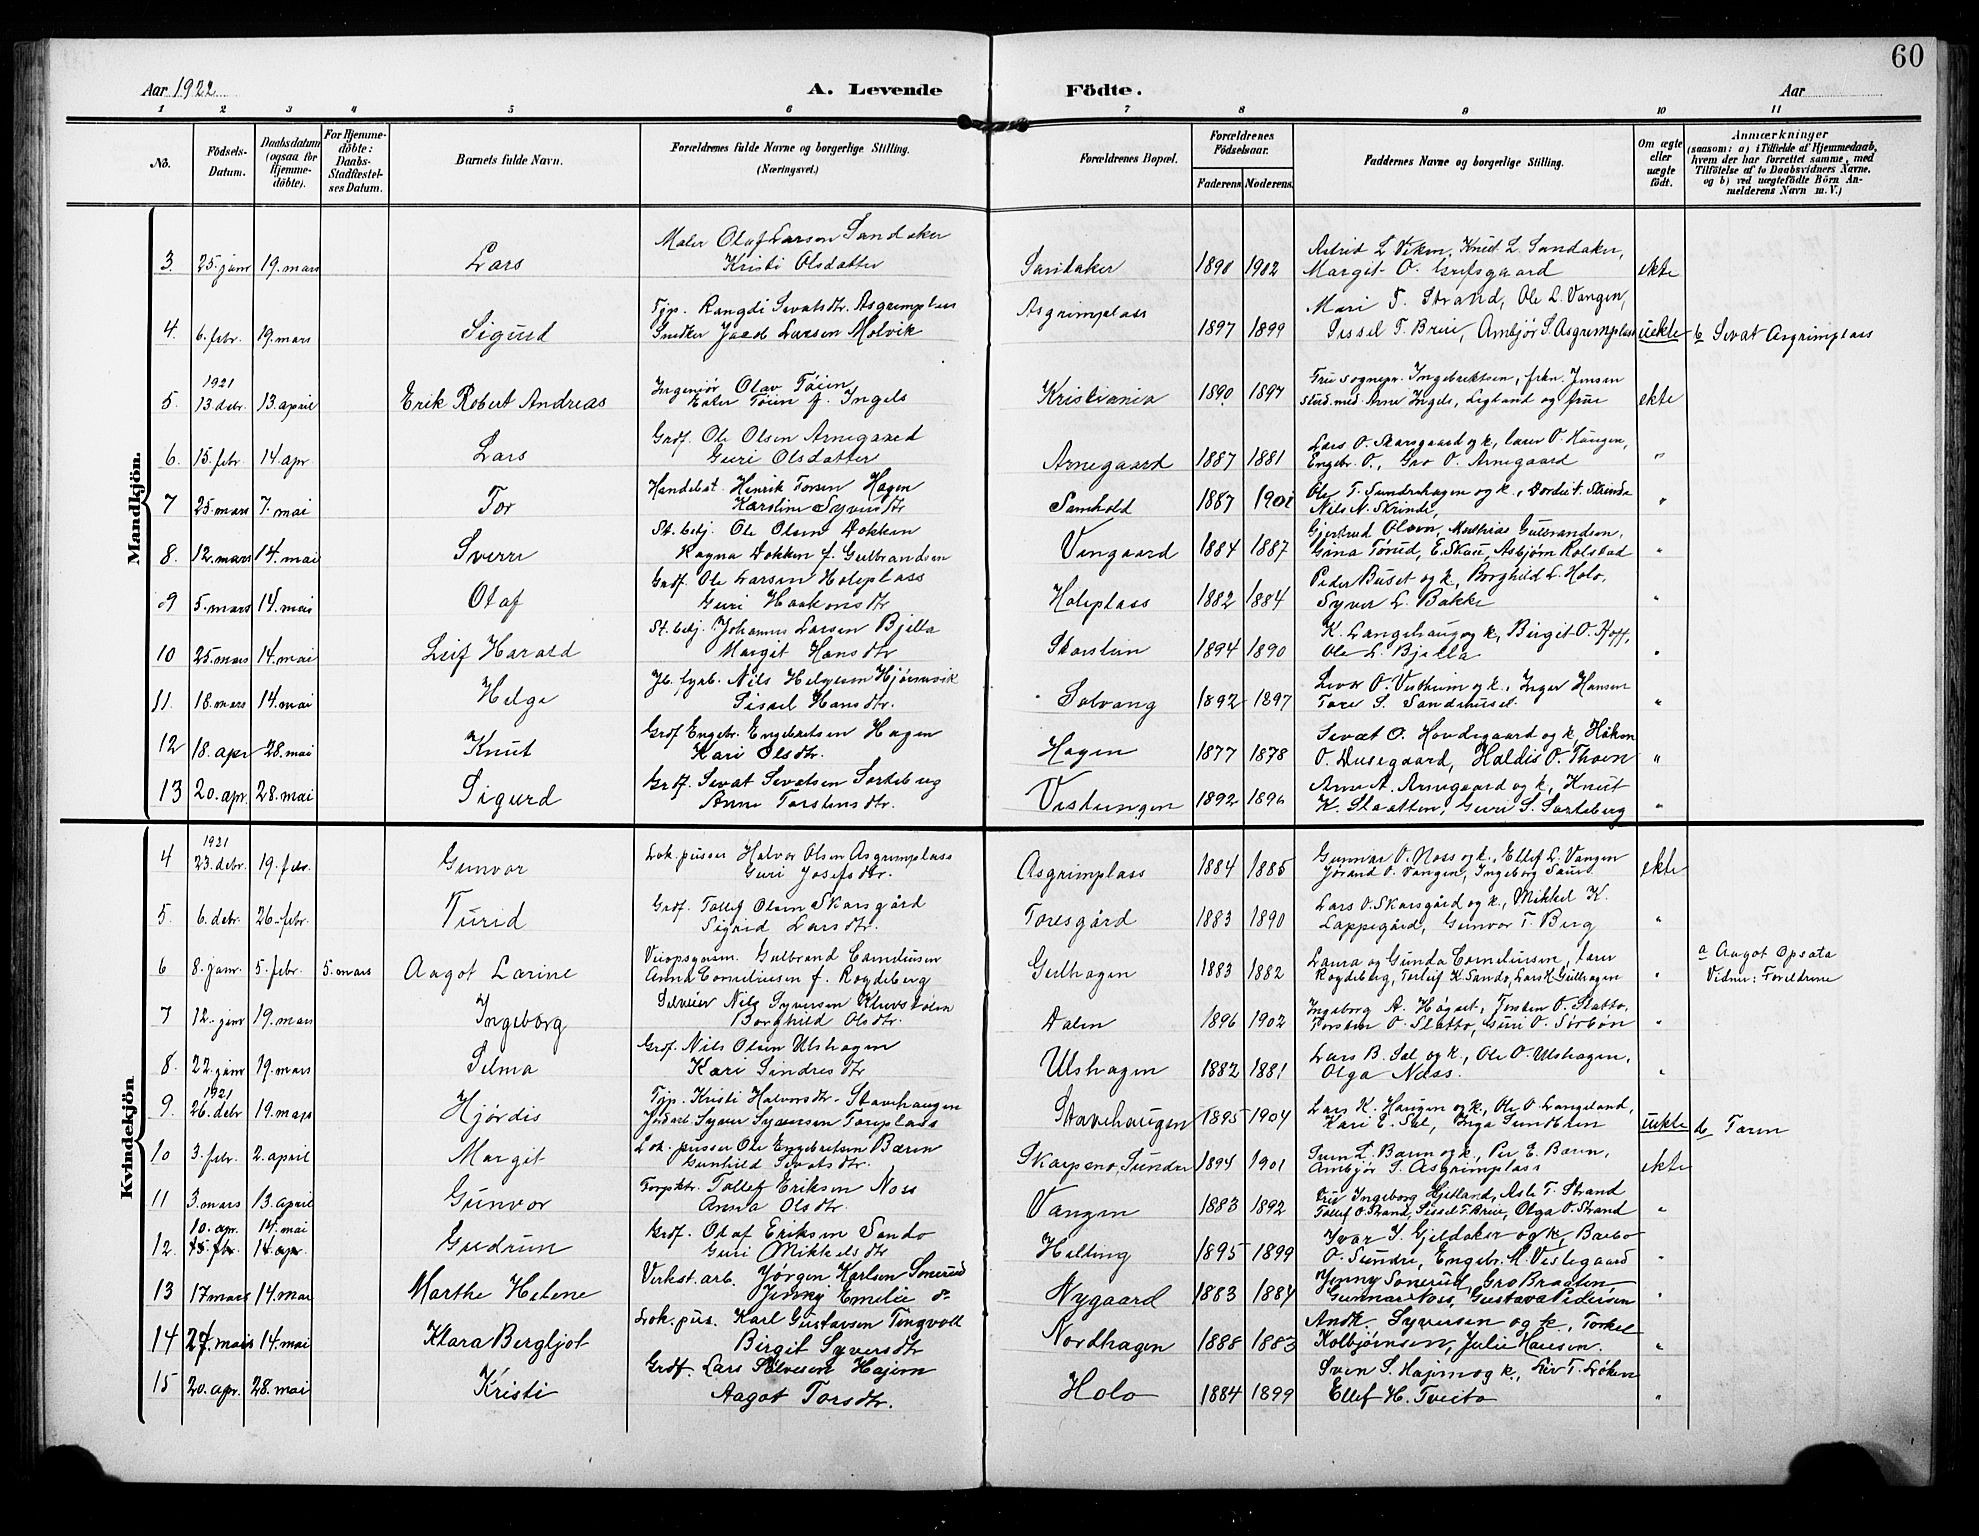 60
Aar 1922
A. Levende
Födte.
Aar
1 2 3 4 5 6 7 8 9 10 11
No.
Födsels-Datum.
Daabsdatum (ogsaa for Hjemme-döbte).
For Hjemme-döbte: Daabs-Stadfæstel-ses Datum.
Barnets fulde Navn.
Forældrenes fulde Navne og borgerlige Stilling.
(Næringsvei.)
Forældrenes Bopæl.
Forældrenes Födselsaar.
Faderens. Moderens.
Faddernes Navne og borgerlige Stilling.
Om ægte eller uægte födt.
Anmærkninger
(saasom: a) i Tilfælde af Hjemmedaab, hvem der har forrettet samme, med Tilföielse af to Daabsvidners Navne, og b) ved uægtefödte Börn An-melderens Navn m. V.)
Mandkjön.
Maler Olaf Larsen Sandaker Astrid L Viken, Knud L. Sandaker,
3. 25. janr 19. mars Lars Kristi Olsdatter Sandaker 1898 1902 Margit O. Grefsgaard ekte
Tjp. Rangdi Sevatsdtr. Asgrimplass Asgrimplass Mari T. Strand, Ole L. Vangen,
4. 6. febr. 19. mars Sigurd Snedker Larsen Molvik 1897 1899 Sissel T. Brue, Ambjør S. Asgrimplass uekte b Sevat Asgrimplass
1921 Ingeniør Olav Töien Fru sognepr. Ingebriktsen, frkn. Jensen
5. 13 debr. 13. april Erik Robert Andreas Ester Töien f. Ingels Kristiania 1890 1897 stud. med. Arne Ingels, og frue ekte
Grdf. Ole Olsen Arnegaard Lars O. Skarsgaard og k, Laver O. Haugen,
6. 15. febr. 14. apr. Lars Guri Olsdatter Arnegaard 1887 1881 Engebr. O., Gro O. Arnegaard "
Handelsb. Henrik Torsen Hagen Ole T. Sundrehagen og k., Dordei T. Skrinde
7 25. mars 7. mai Tor Karoline Syversdtr Samhold 1887 1901 Nils N. Skrinde, "
St. betj. Ole Olsen Dokken Gjertrud Olsen, Mathias Gulbrandsen,
8. 12. mars 14. mai Sverre Ragna Dokken f. Gulbrandsen Vangaard 1884 1887 Gina Tørud, E. Skau, Asbjørn Rolstad "
Grdf. Ole Larsen Holeplass Peder Buset og k, Borghild L. Holo,
9 5. mars 14. mai Olaf Guri Haakonsdtr Holeplass 1882 1884 Syver L. Bakke "
St. betj. Johannes Larsen Bjella K. Langehaug og k, Birgit O. Hoff,
10 25. mars 14. mai Leif Harald Margit Hansdtr Storstein 1894 1890 Ole L. Bjella "
Jb. fyrb. Nils Helgesen Hjørnevik Levor O. Vestheim og k., Inger Hansen
11. 18. mars 14. mai Helge Sissel Hansdtr. Solvang 1892 1897 Tore S. Sandehusel. "
Grdf Engebr. Engebretsen Hagen Sevat O. Hovdegaard og k, Håkon
12 18. apr 28. mai Knut Kari Olsdtr. Hagen 1877 1878 O. Dusegaard, Haldis O. Thoen "
Grdf. Sevat Sevatsen Sarteberg Arne A. Arnegaard og k, Knut
13 20. apr. 28. mai Sigurd Anne Torstensdtr. Vestungen 1892 1896 K. Slaatten, Guri S. Sarteberg "
Kvindekjön
1921 Lok. pusser Halvor Olsen Asgrimplass Gunnar O. Noss og k., Ellef L. Vangen
4 23. debr. 19. febr. Gunvor Guri Josefsdtr. Asgrimplass 1884 1885 Jørand O. Vangen, Ingeborg Saue ekte
Grdf. Tollef Olsen Skarsgård Lars O. Skarsgård og k., Mikkel K.
5. 6. debr. 26. febr. Turid Sigrid Larsdtr. Toresgård 1883 1890 Lappegård, Gunvor T. Berg "
Gulbrand Corneliusen Laura og Gunda Corneliusen, Laver a Aagot Opsata
6 8. janr. 5. febr. 5. mars Aagot Larine Anna Corneliusen f. Rogdeberg Gulhagen 1883 1882 Rogdeberg, Torleif K Sando, Lars K. Gulhagen " Vidner: Foreldrene
Nils Syversen Klevstolen Ingeborg A. Høgset, Torsten O. Slatto,
7 12. janr 19. mars Ingeborg Borghild Olsdtr. Dalen 1896 1902 Torsten O. Slatto, Guri O. Sørbøn "
Grdf. Nils Olsen Ulshagen Lars B. Sel og k., Ole O. Ulshagen,
8. 22. janr 19. mars Selma Kari Sindresdtr Ulshagen 1882 1881 Olga Næss. "
1921 Tjp. Kristi Halvorsdtr. Stavehaugen Lars K. Haugen og k., Ole O. Langeland,
9 26. debr 19. mars Hjørdis Jordarb. Syver Syversen Toreplass Stavehaugen 1895 1904 Kari E. Sel, Inga Sundtlen uekte b Faren
10 3. febr. 2. april Margit Lok. pusser Ole Engebretsen Bæren Skarpeno, Sundre 1894 1901 Sven L. Bæren og k., Per E. Bæren, ekte
Gunhild Sevatsdtr. Ambjør S. Asgrimplass
Torpktr. Tollef Eriksen Noss Fru Ingeborg Hjetland, Asle T. Strand
11 3. mars 13. april Gunvor Anna Olsdtr. Vangen 1883 1892 Tollef O. Strand, Sissel T. Brue, Olga O. Strand "
10. apr. 14. mai Grdf. Olaf Eriksen Sando Ivar S. Gjeldaker og k, Barbo
12. 15. febr 14. apr. Gudrun Guri Mikkelsdtr Helling 1895 1899 O. Sundre, Engebr. M. Veslegaard "
Verkst. arb. Jørgen Karlsen Sonerud Jenny Sonerud, Gro Braaten
13 17 mars 14. mai Marthe Helene Jenny Emelie dr Nygaard 1883 1884 Gunnar Noss, Gustava Pedersen "
Lok. pus. Karl Gustavsen Tingvoll Andr. Syversen og k., Torkel
14 27. mars 14. mai Klara Bergljot Birgit Syversdtr Nordhagen 1888 1883 Kolbjørnsen, Julie Hansen. "
Grdf. Lars Hajem Sven S. Hajem og k., Liv T. Løken
15 20. apr. 28. mai Kristi Aagot Torsdtr. Holo 1884 1899 Ellef H. Tveito "